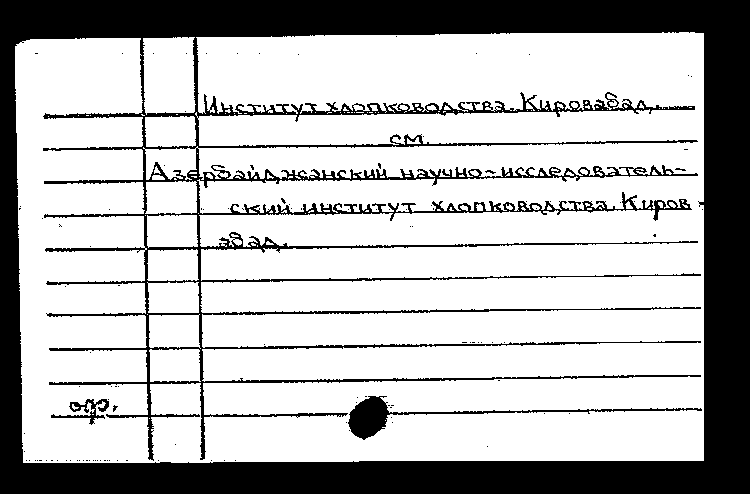 Институт хлопководства. Кировабад.
см.
Азербайджанский научно-исследователь-
ский институт хлопководства. Киров-
абад.
ор.